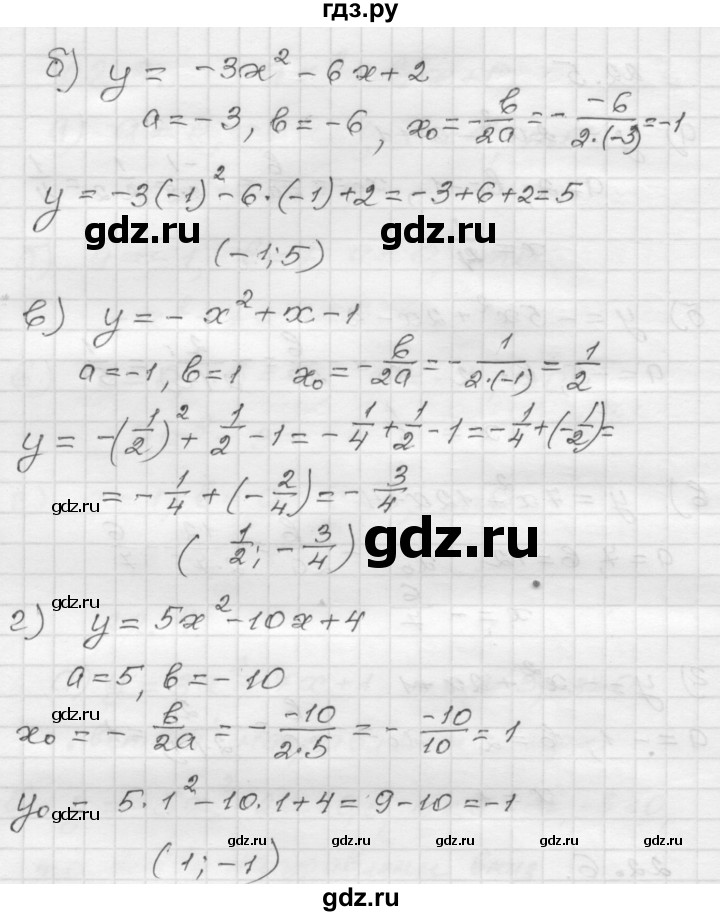 гдз.ру
б) y = -3x² - 6x + 2
a = -3, b = -6, x₀ = -b/2a = - -6/2·(-3) = -1
y = -3(-1)² - 6·(-1) + 2 = -3 + 6 + 2 = 5
gdz.ru gdz.ru
(-1; 5)
в) y = - x² + x - 1
a = -1, b = 1 x₀ = -b/2a = - 1/2·(-1) = 1/2
y = -(1/2)² + 1/2 - 1 = - 1/4 + 1/2 - 1 = - 1/4 + (-1/2) =
= - 1/4 + (- 2/4) = - 3/4
gdz.ru
(1/2; - 3/4)
gdz.ru
gdz.ru
г) y = 5x² - 10x + 4
a = 5, b = -10
gdz.ru
x₀ = - b/2a = - -10/2·5 = - -10/10 = 1
y₀ = 5·1² - 10·1 + 4 = 9 - 10 = -1
gdz.ru
(1; -1)
gdz.ru gdz.ru gdz.ru gdz.ru
gdz.ru